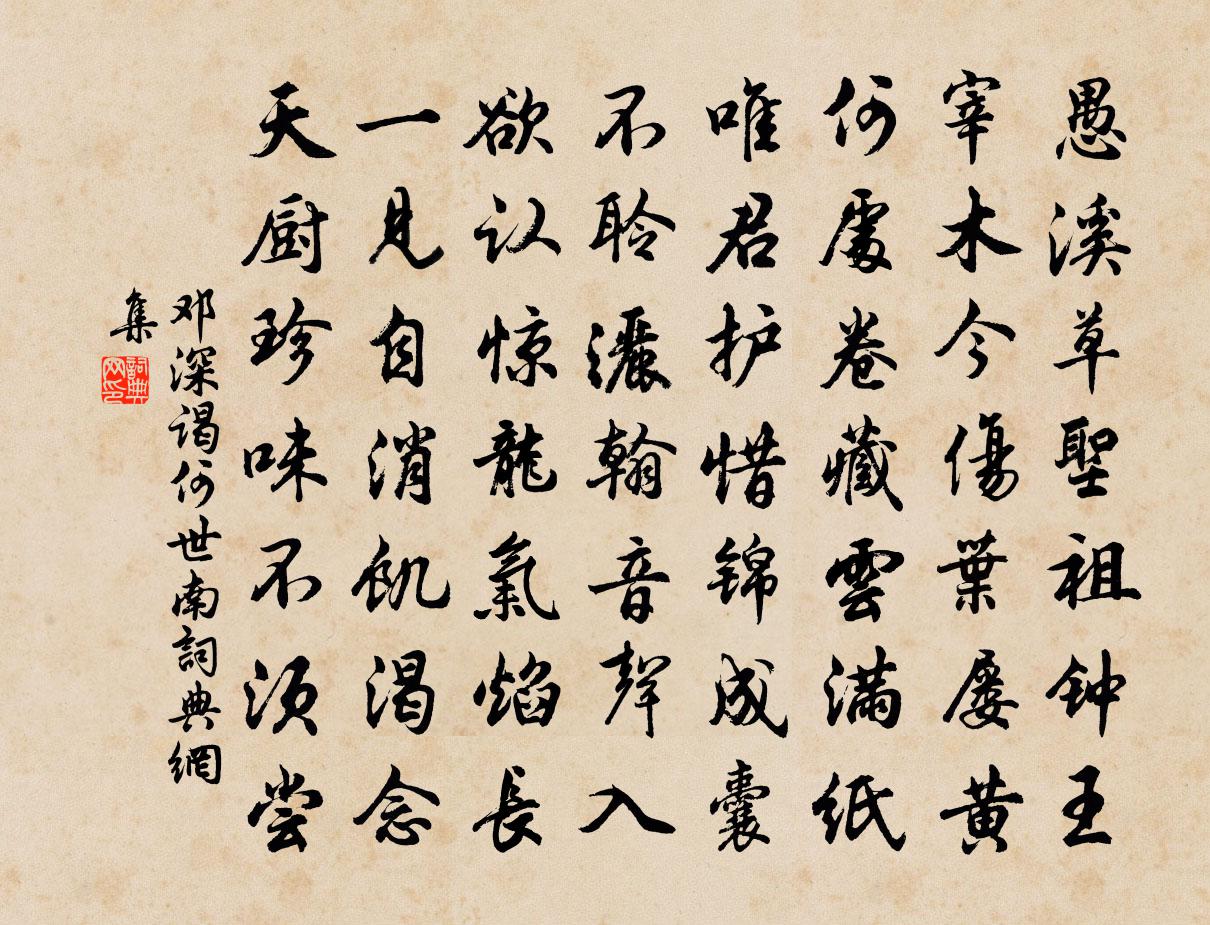 愚溪草聖祖钟王
宰木今傷葉屡黄
何處卷藏雲满紙
唯君护惜锦成囊
不聆灑翰音聲入
欲认惊龍氣焰長
一見自消飢渴念
天厨珍味不須尝
邓深谒何世南詞典網
集
詞典
网印